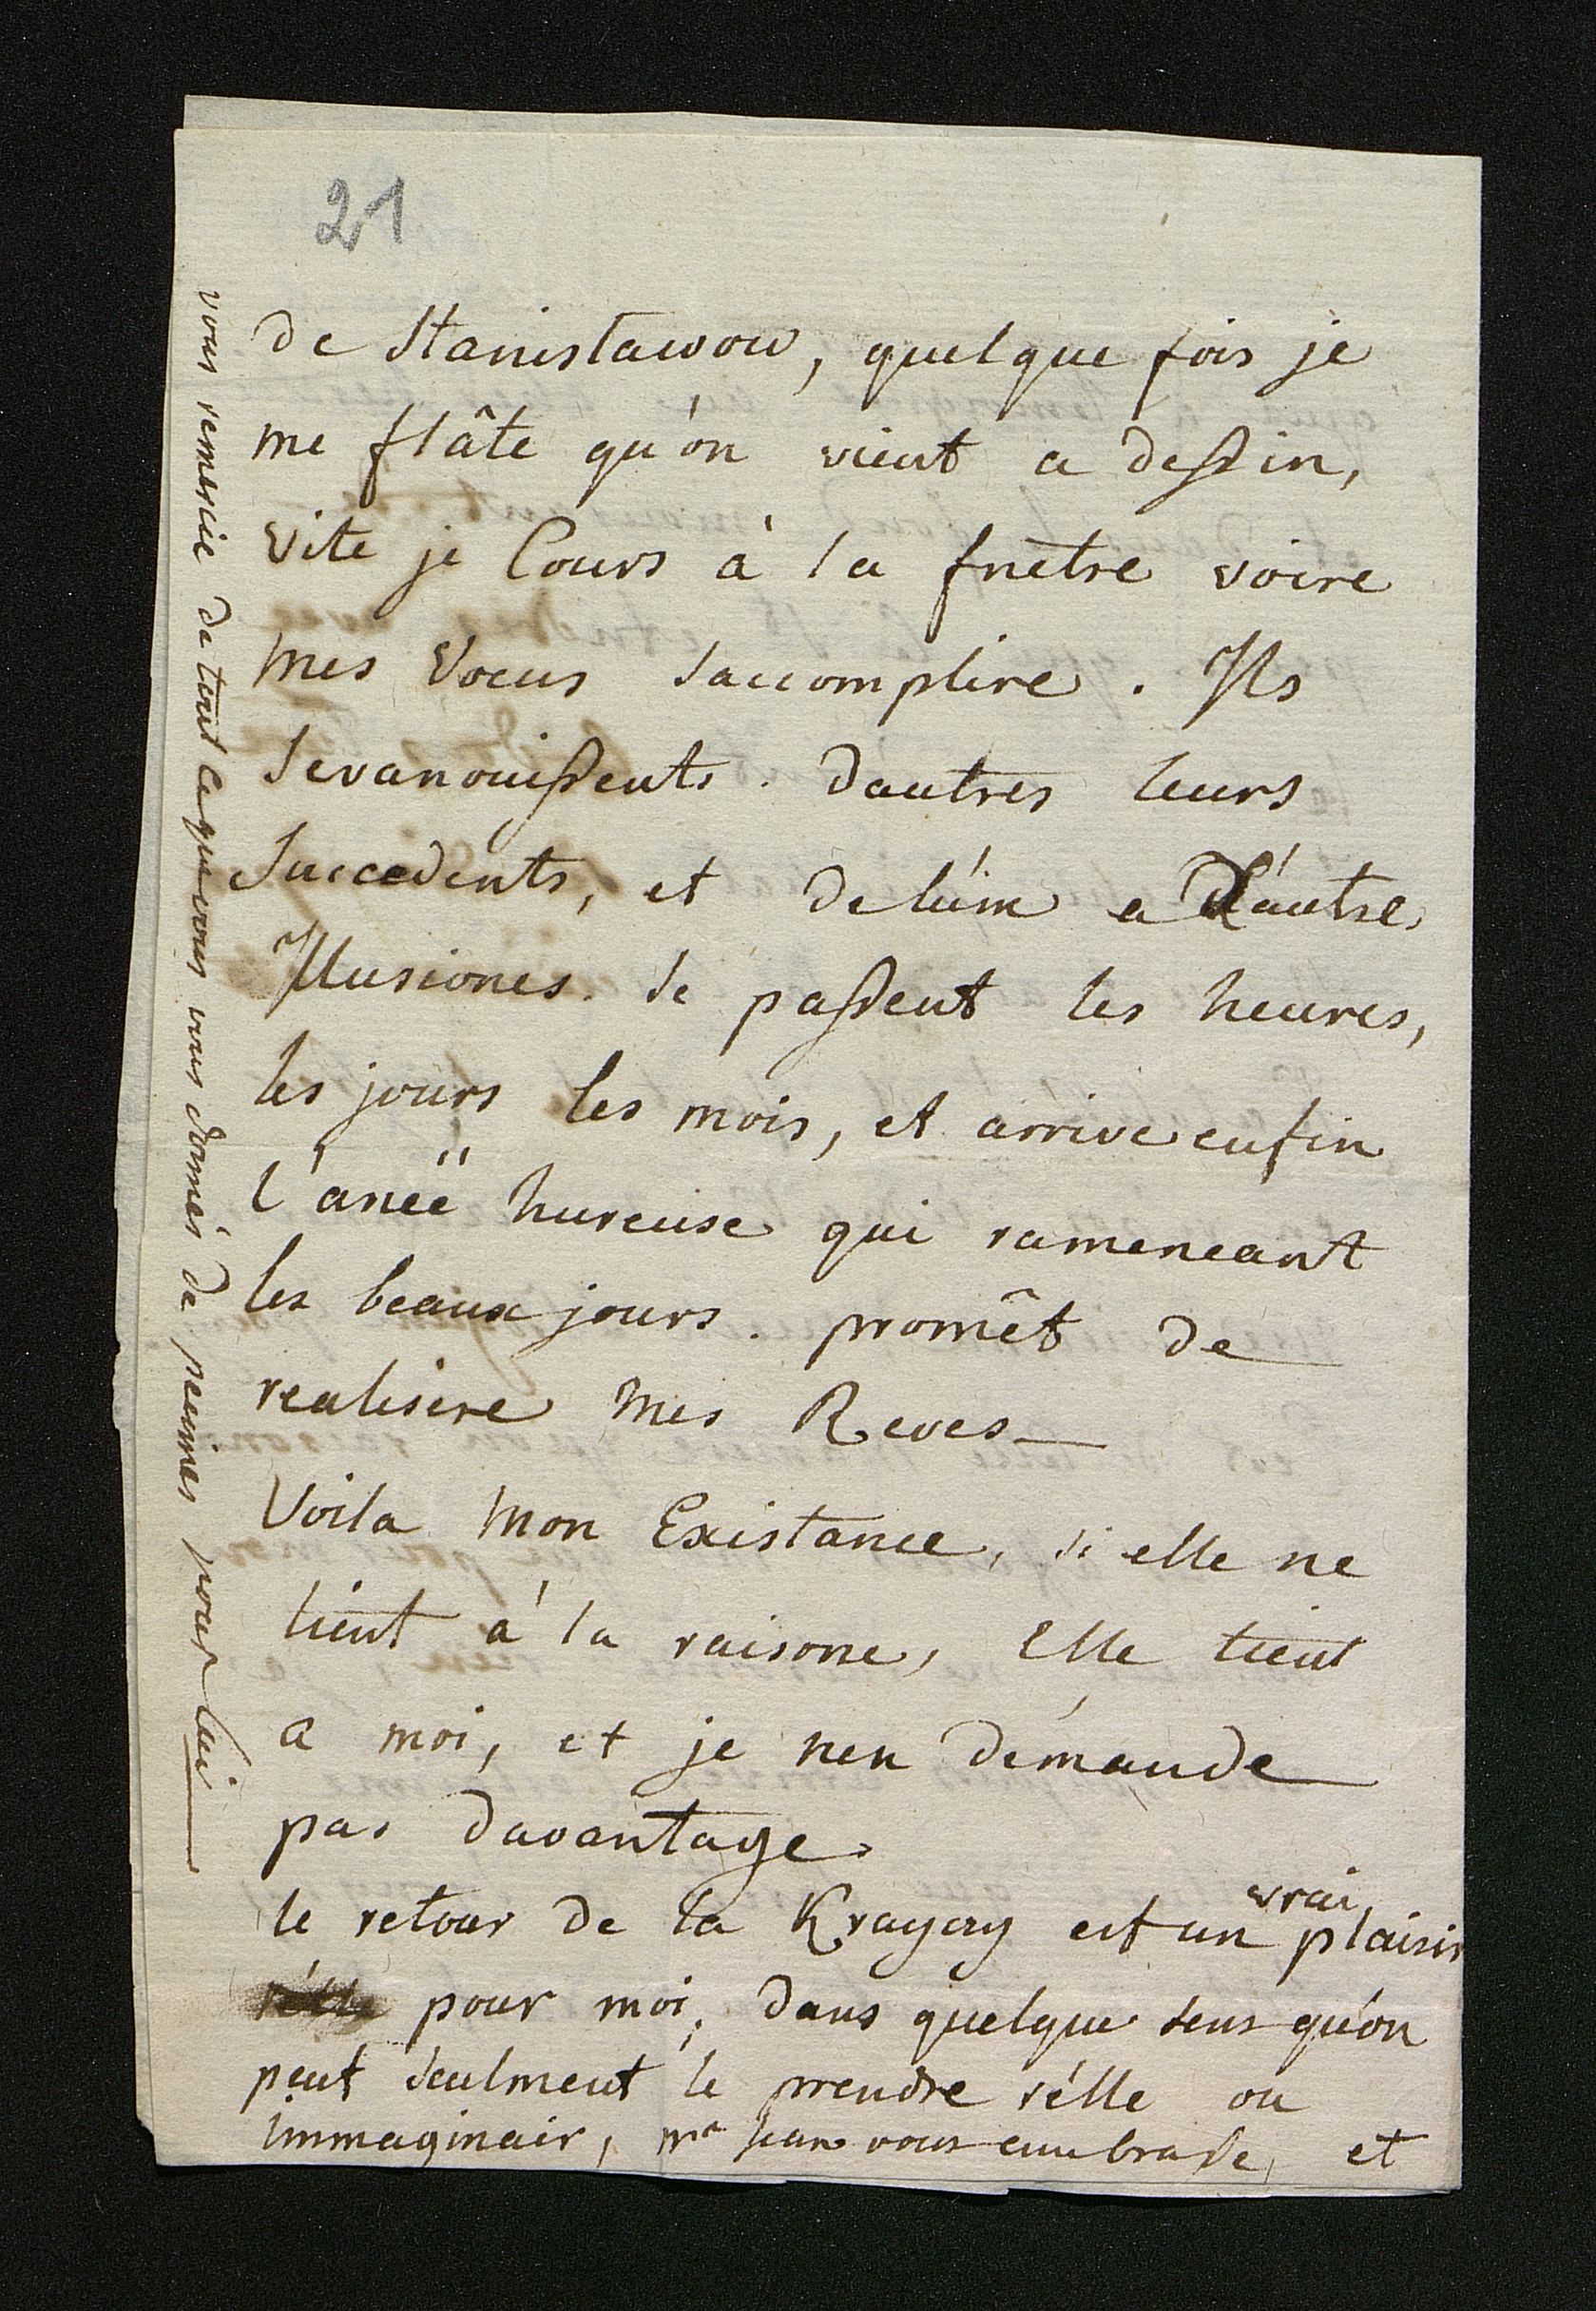 21
de Stanislawow, quelque fois je
me flâte qu'on vient a dessin,
vite je Cours à la fnêtre voire
mes voeus saccomplire. Ils
sevanouissents. dautres leurs
succedents, et de lúne a l'autre
Illusiones. se passent les heures,
les jours les mois, et arrive enfin
l'aneë hureuse qui rameneant
les beaux jours. promêt de
realisere mes Reves_
Voila mon Existance, si elle ne
tient à la raisone, elle tient
a moi, et je nen démande
pas davantage.
vrai
le retour de la est un plaisir
rélle pour moi, dans quelque sens quón
peut seulment le prendre rélle ou
immaginair, Mr Jean vous embrasse, et
vous remercie de tout ce que vous vous donnés de peeines pour lui